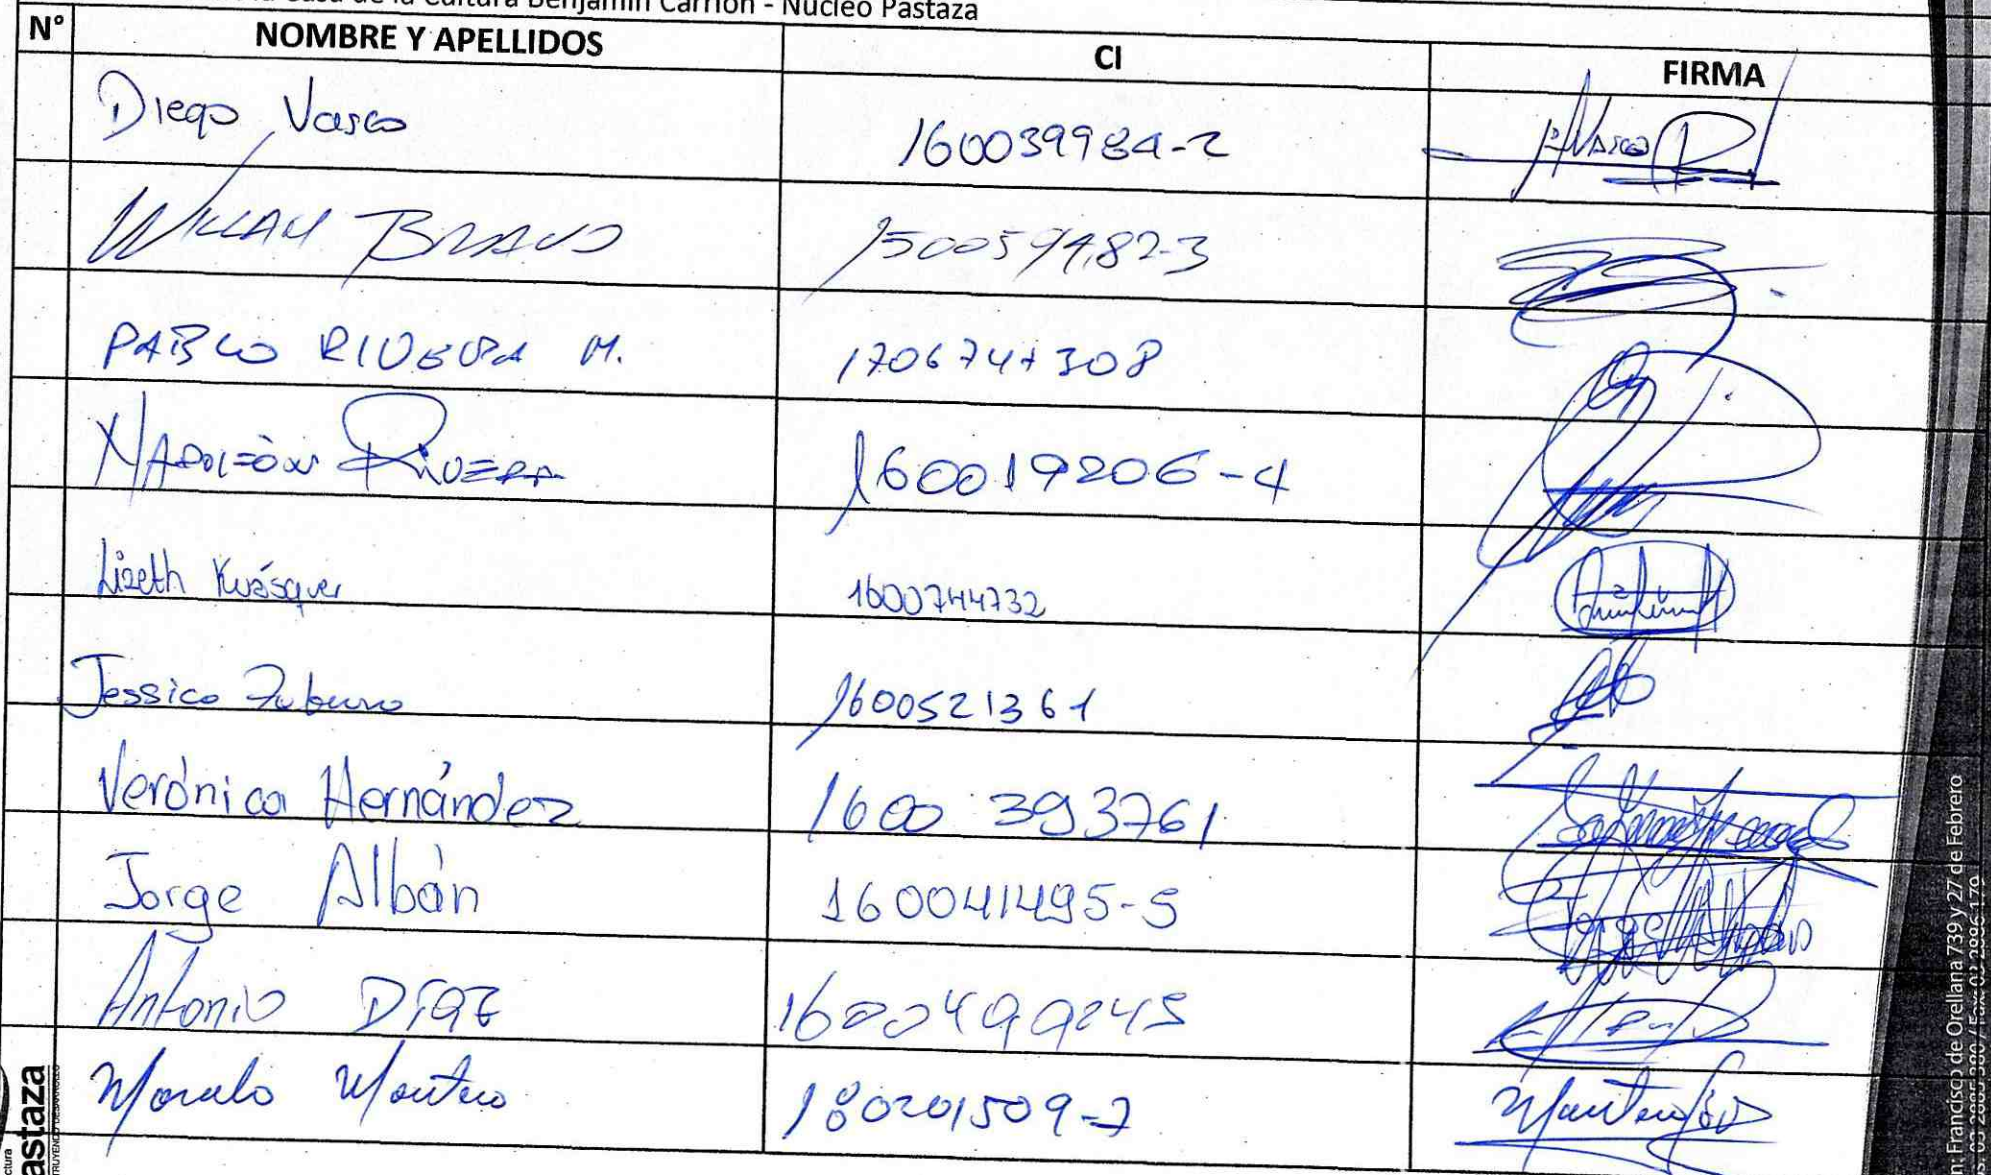 Casa de la Cultura Benjamín Carrión - Núcleo Pastaza
N° NOMBRE Y APELLIDOS CI FIRMA
Diego Vasco 160039984-2
WILLAM BRAVO 150059482-3
PABLO RIVERA M. 1706747308
NAPOLEÓN RIVERA 160019206-4
Lizeth Kuásquer 1600744732
Jessica 1600521361
Verónica Hernández 1600 393761
Jorge Albán 160041495-5 Jorge Albán
Antonio DÍAZ 1600499245
Montero 180201509-7
astaza
n: Francisco de Orellana 739 y 27 de Febrero